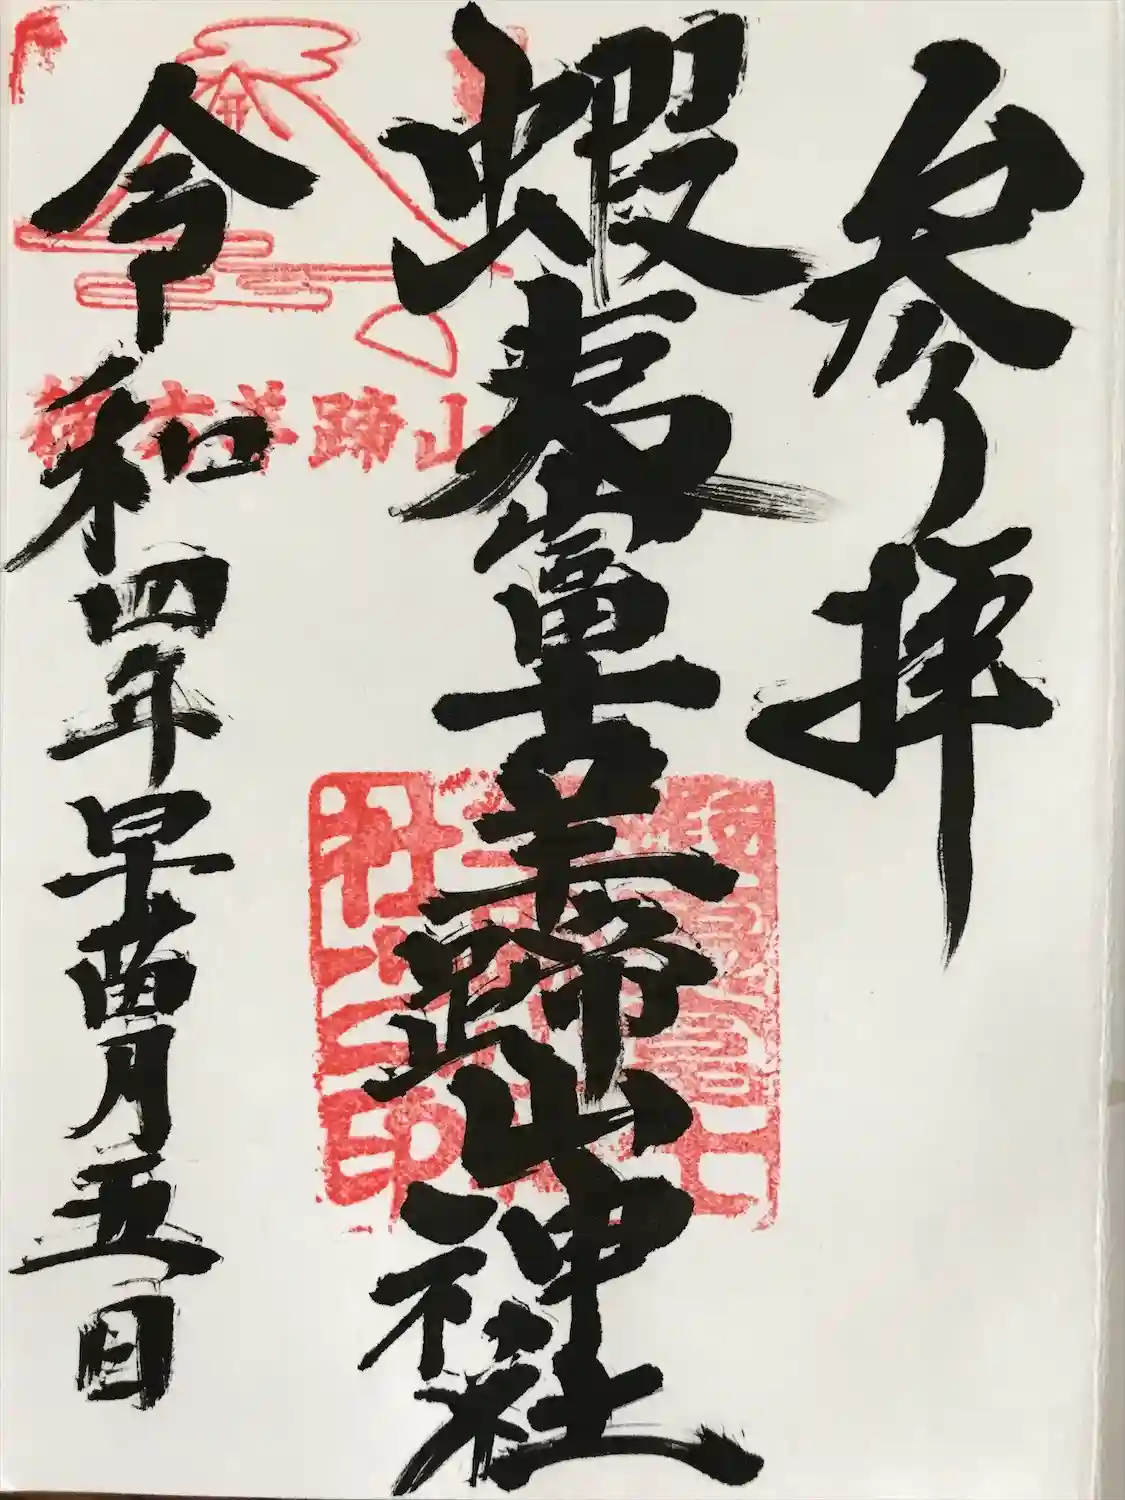 参拝
蝦夷富士羊蹄山神社
令和四年早苗月五日